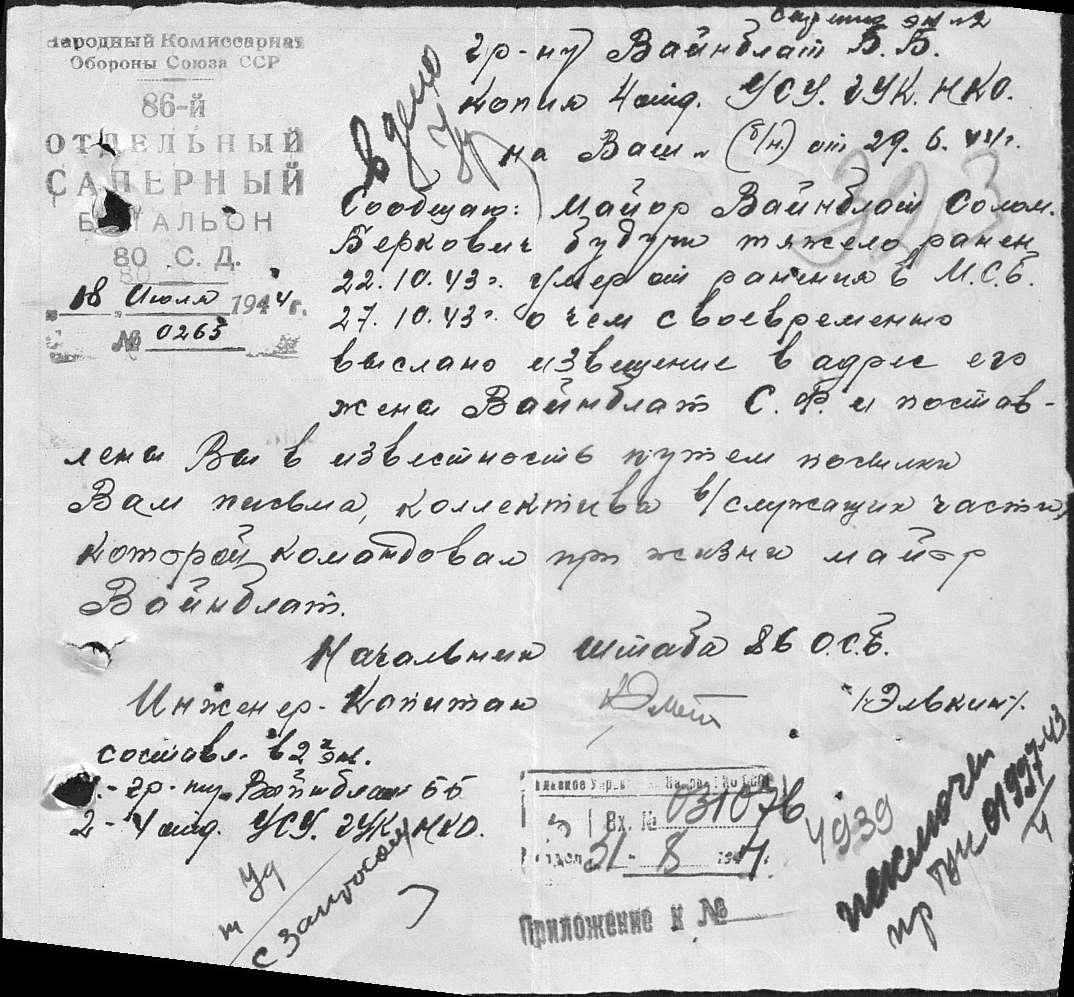 Народный Комиссариат
Обороны Союза ССР
86-й
ОТДЕЛЬНЫЙ
САПЕРНЫЙ
БАТАЛЬОН
80 С. Д.
"18" Июля 1944 г.
№ 0265
экз №2
гр-ну Вайнблат Б. Б.
Копия 4 отд. УСУ. ГУК. НКО.
в дело
на Ваш № (б/н.) от 29. 6. 44г.
393
Сообщаю: Майор Вайнблат Солом.
Беркович будучи тяжело ранен
22.10.43г. умер от ранения в М.С.Б.
27.10.43г. о чем своевременно
выслано извещение в адрес его
жены Вайнблат С. Ф. и постав-
лены Вы в известность путем посылки
Вам письма, коллектива в/служащих части,
которой командовал при жизни майор
Вайнблат.
Начальник штаба 86 О.С.Б.
Инженер-Капитан /Элькин/.
составл. в 2х экз.
1.- гр-ну Вайнблат ББ
2- 4 отд. УСУ. ГУК НКО.
Главное Управ НКО СССР
Вх. № 031076
31- 8 1944г.
Приложение к №
4939
исключен
пр гук 01997-43